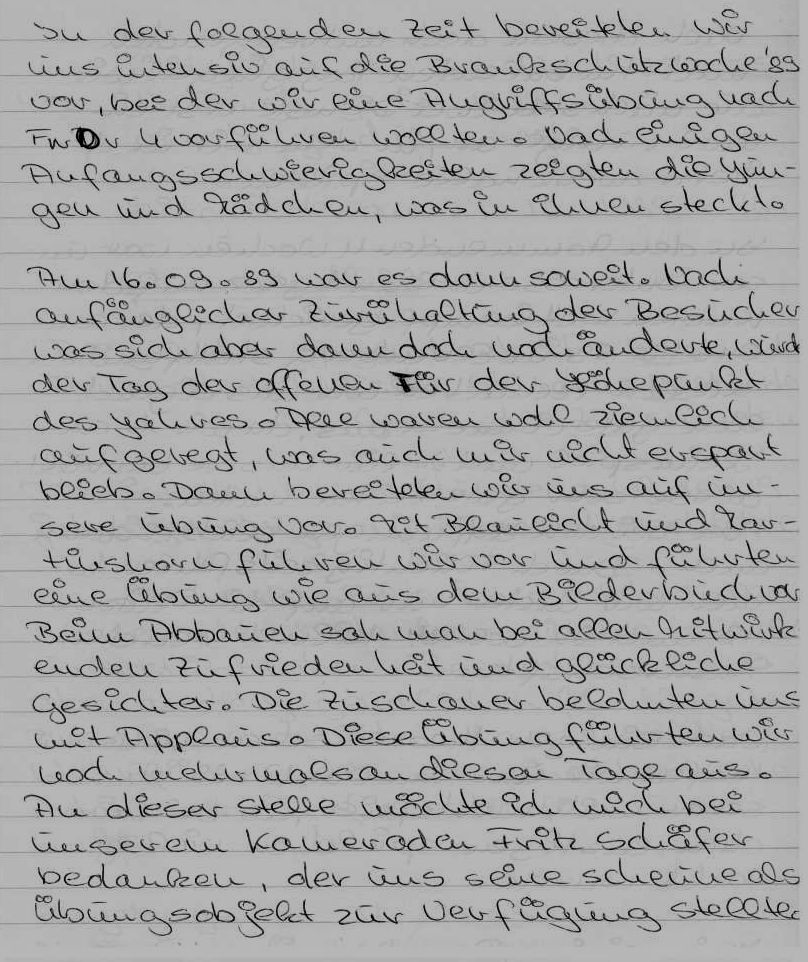 In der folgenden Zeit bereiteten wir
uns intensiv auf die Brandschutzwoche '89
vor, bei der wir eine Angriffsübung nach
FwDv 4 vorführen wollten. Nach einigen
Anfangsschwierigkeiten zeigten die Jun-
gen und Mädchen, was in ihnen steckt.
Am 16.09.89 war es dann soweit. Nach
anfänglicher Zurükhaltung der Besucher
was sich aber dann doch noch änderte, wurd
der Tag der offenen Tür der Höhepunkt
des Jahres. Alle waren wohl ziemlich
aufgeregt, was auch mir nicht erspart
blieb. Dann bereiteten wir uns auf un-
sere Übung vor. Mit Blaulicht und Mar-
tinshorn fuhren wir vor und führten
eine Übung wie aus dem Bilderbuch vor
Beim Abbauen sah man bei allen Mitwirk
enden Zufriedenheit und glückliche
Gesichter. Die Zuschauer belohnten uns
mit Applaus. Diese Übung führten wir
noch mehrmals an diesem Tage aus.
An dieser Stelle möchte ich mich bei
unserem Kameraden Fritz Schäfer
bedanken, der uns seine Scheune als
Übungsobjekt zur Verfügung stellte.